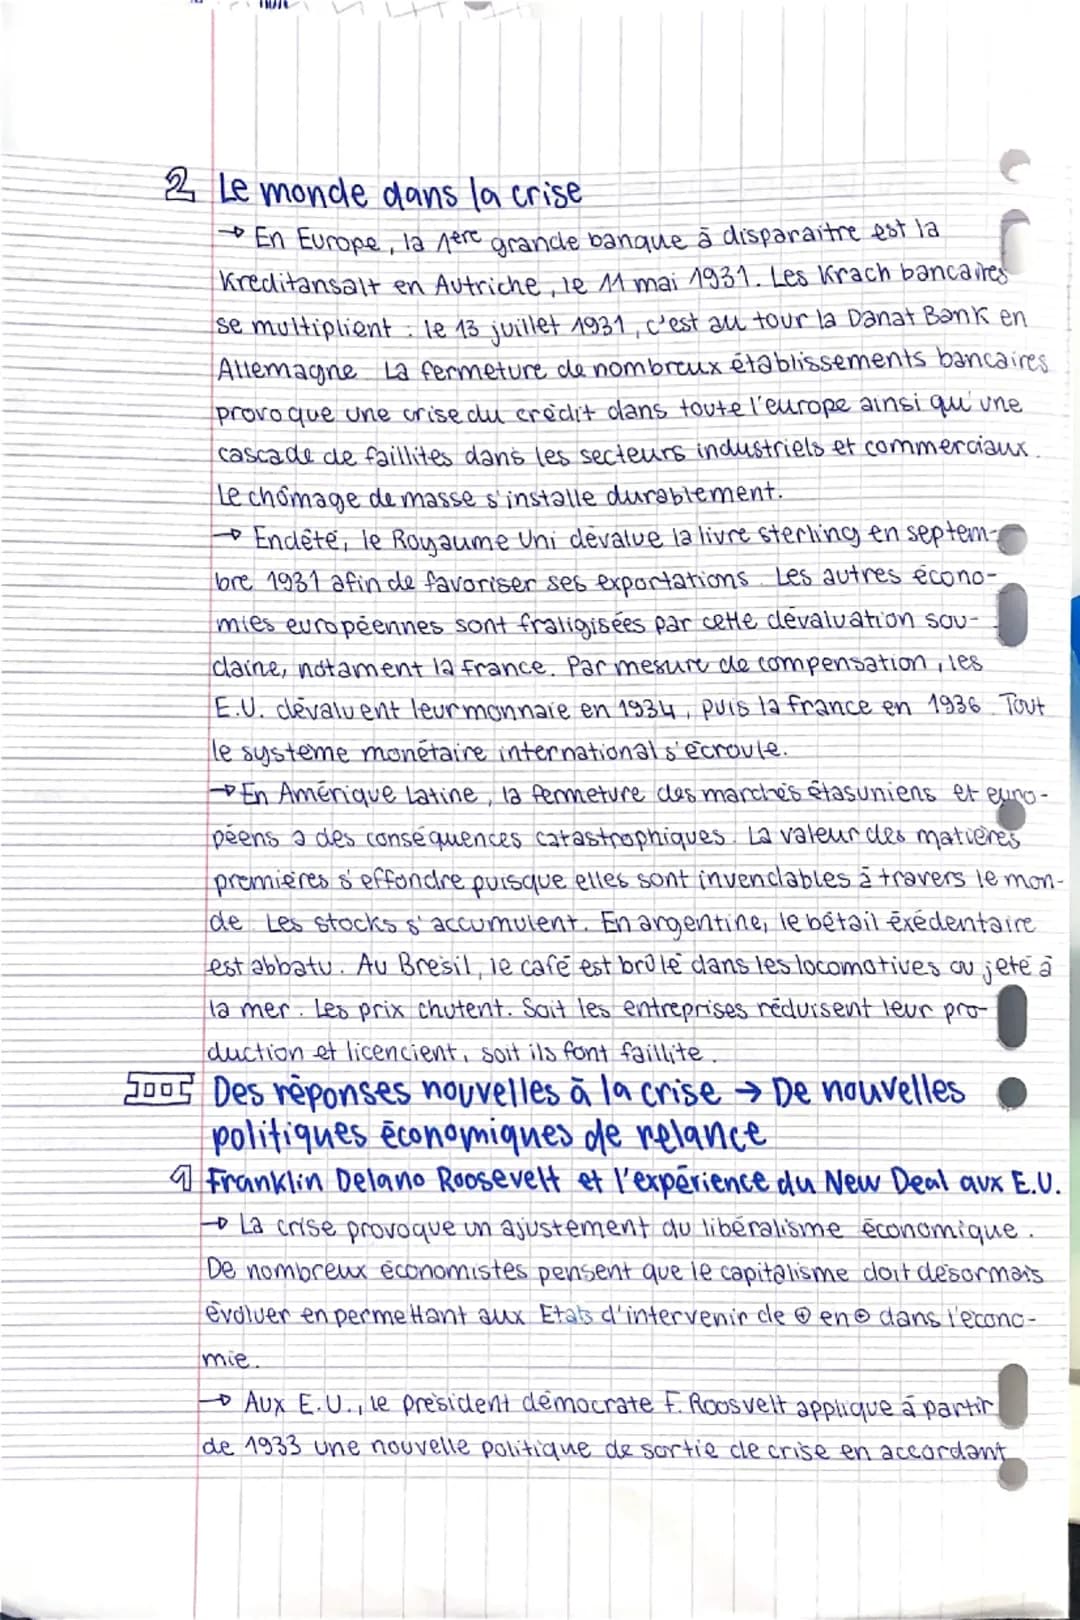 2 Le monde dans la crise
→ En Europe, la 1ère grande banque à disparaitre est la
Kreditansalt en Autriche, le 11 mai 1931. Les Krach bancaires
se multiplient : le 13 juillet 1931, c'est au tour la Danat Bank en
Allemagne La fermeture de nombreux établissements bancaires
provoque une crise du crédit dans toute l'europe ainsi qu'une
cascade de faillites dans les secteurs industriels et commerciaux.
Le chômage de masse s'installe durablement.
→ Endêté, le Royaume Uni dévalue la livre sterling en septem-
bre 1931 afin de favoriser ses exportations. Les autres écono-
mies européennes sont fraligisées par cette dévaluation sou-
daine, notament la france. Par mesure de compensation, les
E.U. dévaluent leur monnaie en 1934, puis la france en 1936. Tout
le systeme monétaire international s'écroule.
→ En Amérique Latine, la fermeture des marchés étasuniens et euro-
péens a des conséquences catastrophiques. La valeur des matières
premières s'effondre puisque elles sont invendables à travers le mon-
de. Les stocks s'accumulent. En argentine, le bétail éxédentaire
est abbatu. Au Bresil, le café est brûlé dans les locomotives ou jeté à
la mer. Les prix chutent. Soit les entreprises réduisent leur pro-
duction et licencient, soit ils font faillite.
II Des réponses nouvelles à la crise → De nouvelles
politiques économiques de relance
1 Franklin Delano Roosevelt et l'expérience du New Deal aux E.U.
→ La crise provoque un ajustement du libéralisme économique.
De nombreux économistes pensent que le capitalisme doit désormais
évoluer en permettant aux Etats d'intervenir de ⊕ en ⊕ dans l'écono-
mie.
→ Aux E.U., le président démocrate F. Roosvelt applique à partir
de 1933 une nouvelle politique de sortie de crise en accordant